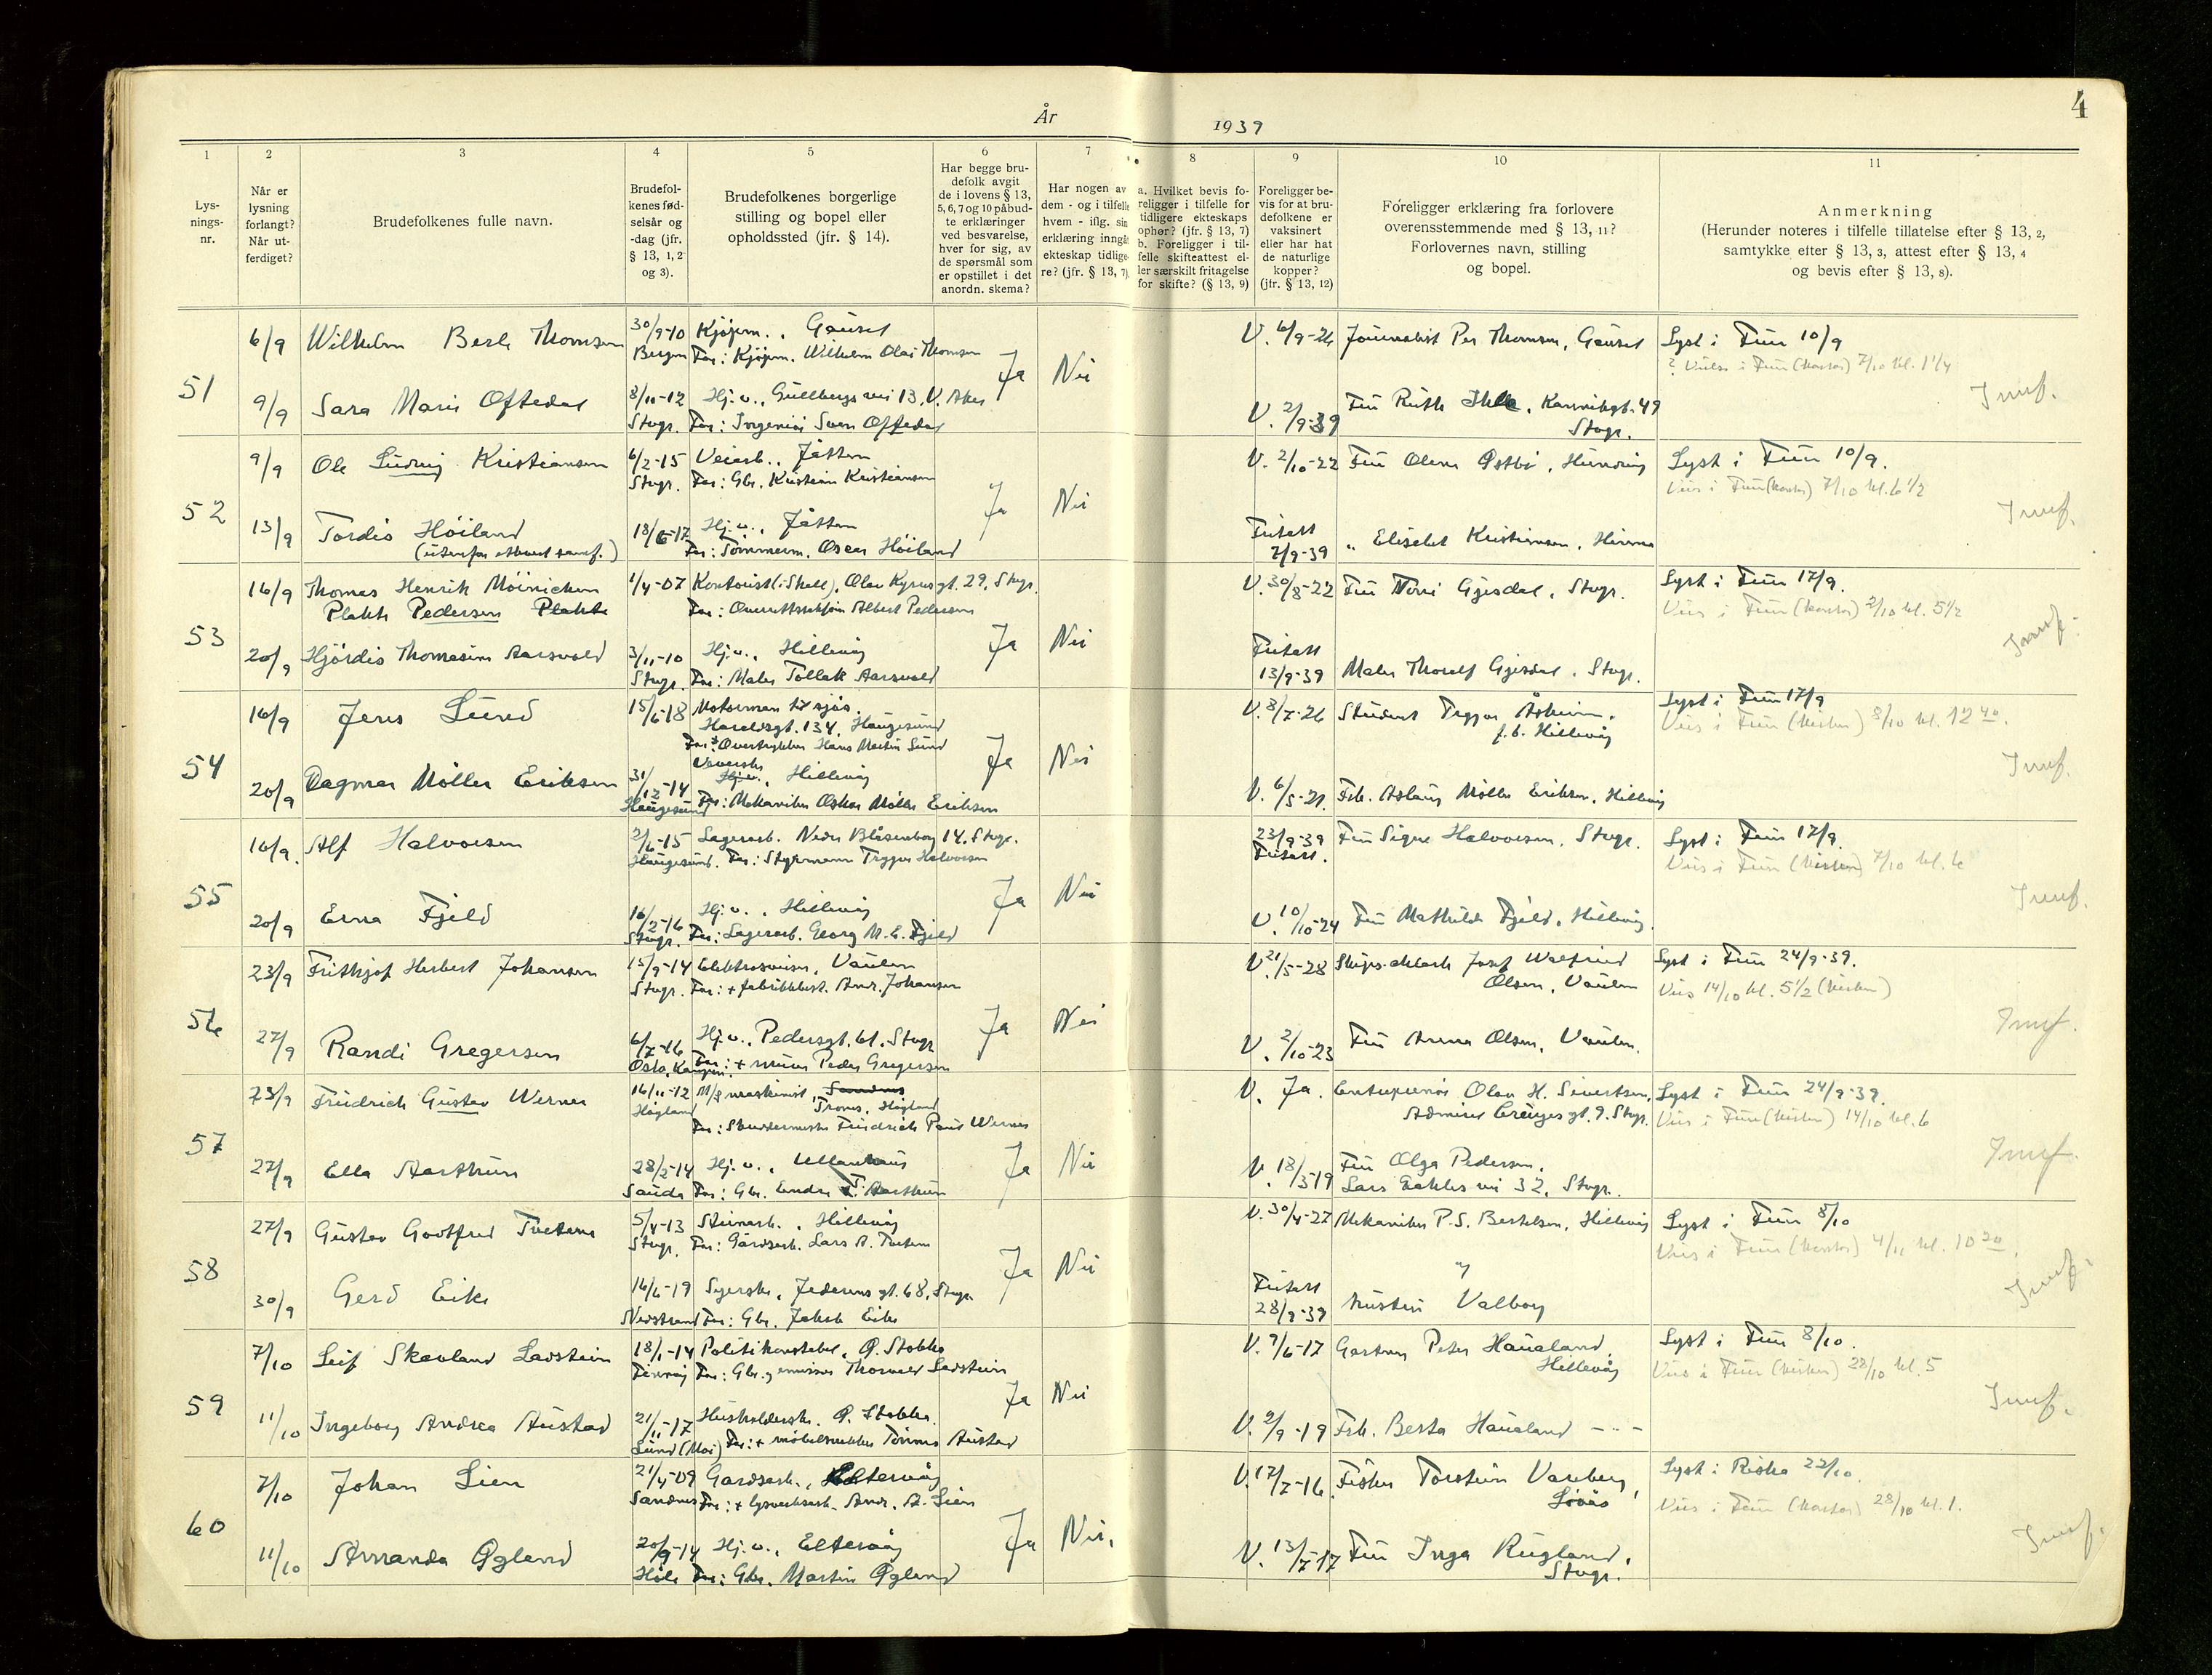 År 1939
4
1
2
3
4
5
6
7
8
9
10
11
Lys-
nings-
nr.
Når er
lysning
forlangt?
Når ut-
ferdiget?
Brudefolkenes fulle navn.
Brudefol-
kenes fød-
selsår og
-dag (jfr.
§ 13, 1, 2
og 3).
Brudefolkenes borgerlige
stilling og bopel eller
opholdssted (jfr. § 14).
Har begge bru-
defolk avgit
de i lovens § 13,
5, 6, 7 og 10 påbud-
te erklæringer
ved besvarelse,
hver for sig, av
de spørsmål som
er opstillet i det
anordn. skema?
Har nogen av
dem - og i tilfelle
hvem - iflg. sin
erklæring inngåt
ekteskap tidlige-
re? (jfr. § 13, 7)
a. Hvilket bevis fo-
religger i tilfelle for
tidligere ekteskaps
ophør? (jfr. § 13, 7)
b. Foreligger i til-
felle skifteattest el-
ler særskilt fritagelse
for skifte? (§ 13, 9)
Foreligger be-
vis for at bru-
defolkene er
vaksinert
eller har hat
de naturlige
kopper?
(jfr. § 13, 12)
Foreligger erklæring fra forlovere
overensstemmende med § 13, 11?
Forlovernes navn, stilling
og bopel.
Anmerkning
(Herunder noteres i tilfelle tillatelse efter § 13, 2,
samtykke efter § 13, 3, attest efter § 13, 4
og bevis efter § 13, 8).
51
6/9 Wilhelm Berle Thomsen 30/9-10 Kjøpm., Gausel V. 6/9-26 Journalist Per Thomsen, Gausel Lyst i Frue 10/9
Bergen Far: Kjøpm. Wilhelm Olai Thomsen Ja Nei
9/9 Sara Marie Oftedal 8/11-12 Hj.v., Gullbergs vei 13, V. Aker V. 2/9-39 Fru Ruth Ihle, Kannikgt. 49
Stvgr. Far: Ingeniør Sven Oftedal Stvgr.
52
9/9 Ole Ludvig Kristiansen 6/2-15 Veiarb., Jåtten V. 2/10-22 Fru Olene Østbø, Hundvåg Lyst i Frue 10/9.
Stvgr. Far: Gbr. Kristian Kristiansen Ja Nei Vies i Frue (kontor) 7/10 kl. 6 1/2
13/9 Tordis Høiland 18/6-17 Hj.v., Jåtten Fritatt 7/9-39 " Elisabet Kristiansen, Hinna
(utenfor ethvert samf.) Far: Tømmerm. Oscar Høiland
53
16/9 Thomas Henrik Møinichen 1/4-07 Kontorist (i Shell), Olav Kyrres gt. 29, Stvgr. V. 30/8-22 Fru Toni Gjesdal, Stvgr. Lyst i Frue 17/9.
Plahte Pedersen Plahte Far: Overrettssakfører Albert Pedersen Vies i Frue (kontor) 2/10 kl. 5 1/2
Ja Nei
20/9 Hjørdis Thomasine Aarsvold 3/11-10 Hj.v., Hillevåg Fritatt 13/9-39 Maler Thoralf Gjesdal, Stvgr.
Stvgr. Far: Maler Tollak Aarsvold
54
16/9 Jens Lund 15/6-18 Motormann til sjøs. V. 8/7-26 Student Trygve Åsheim, Lyst i Frue 17/9
Haraldsgt. 134, Haugesund f.b. Hillevåg Vies i Frue (kirken) 8/10 kl. 12 40.
Far: Overstyrmann Hans Martin Lund Ja Nei
20/9 Dagmar Møller Eriksen 31/12-14 Hj.v., Hillevåg V. 6/5-21. Frk. Aslaug Møller Eriksen, Hillevåg
Haugesund Far: Mekaniker Oskar Møller Eriksen
55
16/9. Alf Halvorsen 2/6-15 Lagerarb. Nedre Blåsenborg 14, Stvgr. 23/9-39 Fritatt. Fru Signe Halvorsen, Stvgr. Lyst i Frue 17/9.
Haugesund. Far: Styrmann Trygve Halvorsen Vies i Frue (kirken) 7/10 kl. 6
Ja Nei
20/9 Erna Fjeld 16/2-16 Hj.v., Hillevåg V. 10/10-24 Fru Mathilde Fjeld, Hillevåg.
Stvgr. Far: Lagerarb. Georg M. E. Fjeld
56
23/9 Frithjof Herbert Johansen 15/9-14 Elektrosveiser, Vaulen V. 21/5-28 Skips-ekleck Josef Walfried Lyst i Frue 24/9-39.
Stvgr. Far: + fabrikkbest. Andr. Johansen Olsen, Vaulen Vies 14/10 kl. 5 1/2 (kirken)
Ja Nei
27/9 Randi Gregersen 6/7-16 Hj.v., Pedersgt. 61, Stvgr V. 2/10-23 Fru Anna Olsen, Vaulen.
Oslo, Kampen. Far: + murer Peder Gregersen
57
23/9 Friedrich Gustav Werner 16/11-12 M/s maskinist, Sandnes V. Ja. Entreprenør Olav H. Sivertsen, Lyst i Frue 24/9-39.
Høgland Troms, Høgland Admiral Cruys gt. 9. Stvgr. Vies i Frue (kirken) 14/10 kl. 6
Far: Skreddermester Friedrich Paul Werner
27/9 Ella Aarthun 28/2-14 Hj.v., Ullandhaug Ja Nei V. 18/3-19 Fru Olga Pedersen,
Sauda Far: Gbr. Endre T. Aarthun Lars Eckles vei 32, Stvgr.
58
27/9 Gustav Gootfred Tveterås 5/4-13 Steinarb., Hillevåg V. 30/4-27 Mekaniker P. S. Bertelsen, Hillevåg Lyst i Frue 8/10
Stvgr. Far: Gårdsarb. Lars A. Vies i Frue (kontor) 4/11 kl. 10 30.
Ja Nei
30/9 Gerd Eike 16/6-19 Syerske, Jederens gt. 68, Stvgr. Fritatt 28/9-39 hustru Valborg
Nedstrand Far: Gbr. Jakob Eike
59
7/10 Leif Skavland Ladstein 18/1-14 Politikonstabel, Q. Stokka V. 9/6-17 Gartner Peter Haualand, Lyst i Frue 8/10.
Finnøy Far: Gbr. og emissær Thorvald Ladstein Hillevåg Vies i Frue (kirken) 28/10 kl. 5
Ja Nei
11/10 Ingeborg Andrea Austad 21/11-17 Husholderske. Q. Stokka. V. 9/9-19 Frk. Berta Haualand -"-
Lund (Moi) Far: + møbelsnekker Tønnes Austad
60
7/10 Johan Lien 21/4-09 Gardsarb., Eltervåg V. 17/7-16 Fisker Torstein Vareberg, Lyst i Riska 22/10.
Sandnes Far: + lysverksarb. Andr. A. Lien Vies i Frue (kontor) 28/10 kl. 1.
Ja Nei.
11/10 Amanda Øgland 20/9-14 Hj.v., Eltervåg V. 13/7-17 Fru Inga Rugland,
Høle Far: Gbr. Martin Øgland Stvgr.